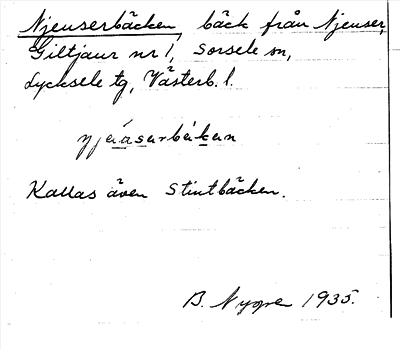 Njeuserbäcken, bäck från Njeuser,
Giltjaur nr 1, Sorsele sn,
Lycksele tg, Västerb. l.
Kallas även Stintbäcken.
B. Nygre 1935.